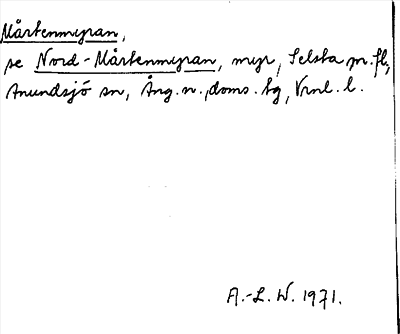 Mårtenmyran,
se Nord-Mårtenmyran, myr, Selsta m. fl.,
Anundsjö sn, Ång. n. doms. tg, Vrnl. l.
A.-L. W. 1971.